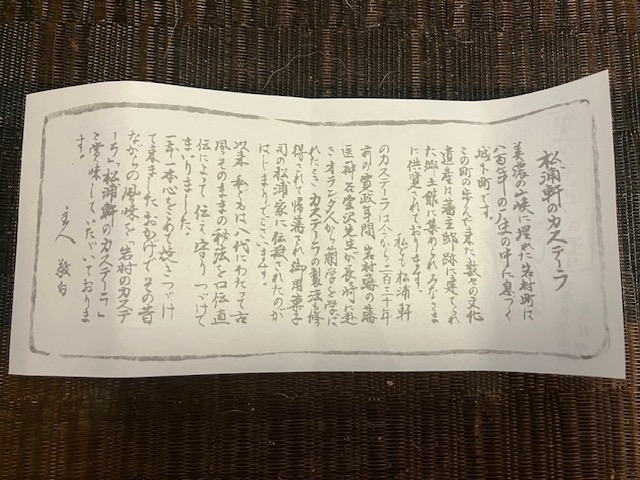 松浦軒のカステーラ
美濃の山峡に埋れた岩村町は
八百年の歴史の中に息づく
城下町です。
この町の歩んで来た数々の文化
遺産は藩主邸跡に建てられ
た郷土館に集められみなさま
に供覧されております。
私ども松浦軒
のカステーラは今から二百三十年
前の寛政年間、岩村藩の藩
医神谷雲沢先生が長崎へ赴
きオランダ人から蘭学を学ば
れたとき カステーラの製法も修
得されて帰藩され御用菓子
司の松浦家に伝授されたのが
はじまりでございます。
以来 私どもは八代にわたって古
風そのままの秘法を口伝直
伝によって 伝え守り つづけて
まいりました。
一本一本心をこめて焼きつづけ
て来ました おかげで その昔
ながらの風味を「岩村のカステ
ーラ」「松浦軒のカステーラ」
と賞味して いただいておりま
す。
主人 敬白